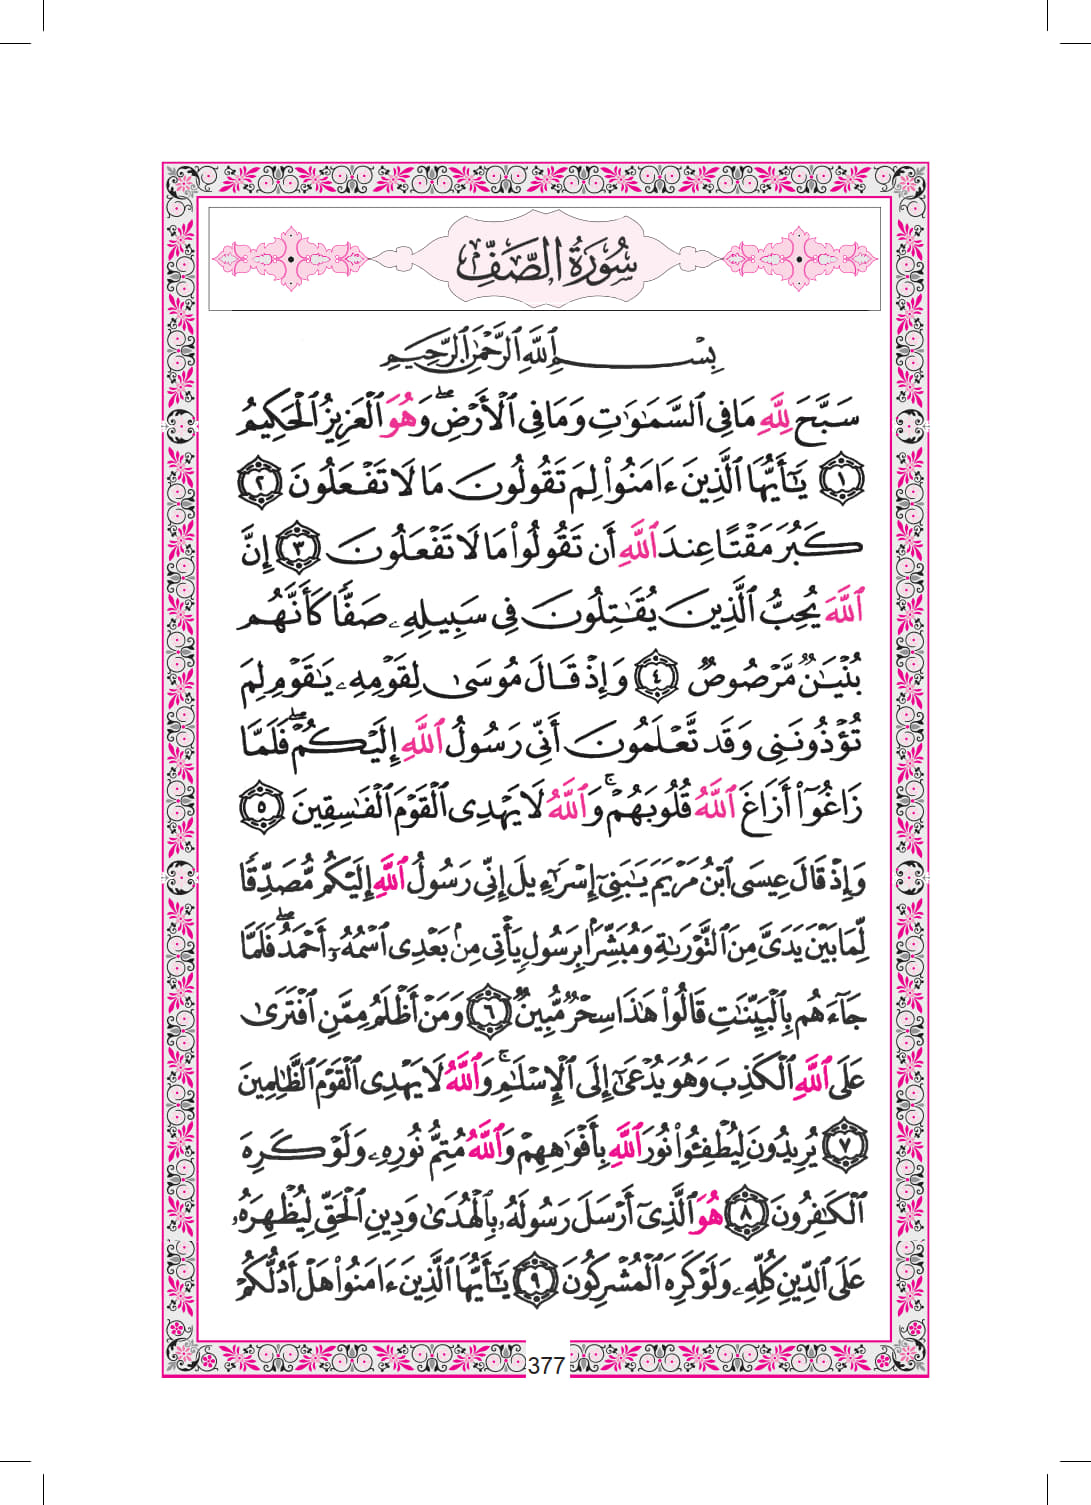 سُورَةُ الصَّفِّ
بِسْمِ ٱللَّهِ ٱلرَّحْمَٰنِ ٱلرَّحِيمِ
سَبَّحَ لِلَّهِ مَا فِي ٱلسَّمَٰوَٰتِ وَمَا فِي ٱلْأَرْضِۖ وَهُوَ ٱلْعَزِيزُ ٱلْحَكِيمُ
١ يَٰٓأَيُّهَا ٱلَّذِينَ ءَامَنُوا۟ لِمَ تَقُولُونَ مَا لَا تَفْعَلُونَ ٢
كَبُرَ مَقْتًا عِندَ ٱللَّهِ أَن تَقُولُوا۟ مَا لَا تَفْعَلُونَ ٣ إِنَّ
ٱللَّهَ يُحِبُّ ٱلَّذِينَ يُقَٰتِلُونَ فِي سَبِيلِهِۦ صَفًّا كَأَنَّهُم
بُنْيَٰنٌ مَّرْصُوصٌ ٤ وَإِذْ قَالَ مُوسَىٰ لِقَوْمِهِۦ يَٰقَوْمِ لِمَ
تُؤْذُونَنِي وَقَد تَّعْلَمُونَ أَنِّي رَسُولُ ٱللَّهِ إِلَيْكُمْۖ فَلَمَّا
زَاغُوٓا۟ أَزَاغَ ٱللَّهُ قُلُوبَهُمْۚ وَٱللَّهُ لَا يَهْدِى ٱلْقَوْمَ ٱلْفَٰسِقِينَ ٥
وَإِذْ قَالَ عِيسَى ٱبْنُ مَرْيَمَ يَٰبَنِىٓ إِسْرَٰٓءِيلَ إِنِّي رَسُولُ ٱللَّهِ إِلَيْكُم مُّصَدِّقًا
لِّمَا بَيْنَ يَدَىَّ مِنَ ٱلتَّوْرَىٰةِ وَمُبَشِّرًۢا بِرَسُولٍ يَأْتِى مِنۢ بَعْدِى ٱسْمُهُۥٓ أَحْمَدُۖ فَلَمَّا
جَآءَهُم بِٱلْبَيِّنَٰتِ قَالُوا۟ هَٰذَا سِحْرٌ مُّبِينٌ ٦ وَمَنْ أَظْلَمُ مِمَّنِ ٱفْتَرَىٰ
عَلَى ٱللَّهِ ٱلْكَذِبَ وَهُوَ يُدْعَىٰٓ إِلَى ٱلْإِسْلَٰمِۚ وَٱللَّهُ لَا يَهْدِى ٱلْقَوْمَ ٱلظَّٰلِمِينَ
٧ يُرِيدُونَ لِيُطْفِـُٔوا۟ نُورَ ٱللَّهِ بِأَفْوَٰهِهِمْ وَٱللَّهُ مُتِمُّ نُورِهِۦ وَلَوْ كَرِهَ
ٱلْكَٰفِرُونَ ٨ هُوَ ٱلَّذِىٓ أَرْسَلَ رَسُولَهُۥ بِٱلْهُدَىٰ وَدِينِ ٱلْحَقِّ لِيُظْهِرَهُۥ
عَلَى ٱلدِّينِ كُلِّهِۦ وَلَوْ كَرِهَ ٱلْمُشْرِكُونَ ٩ يَٰٓأَيُّهَا ٱلَّذِينَ ءَامَنُوا۟ هَلْ أَدُلُّكُمْ
377